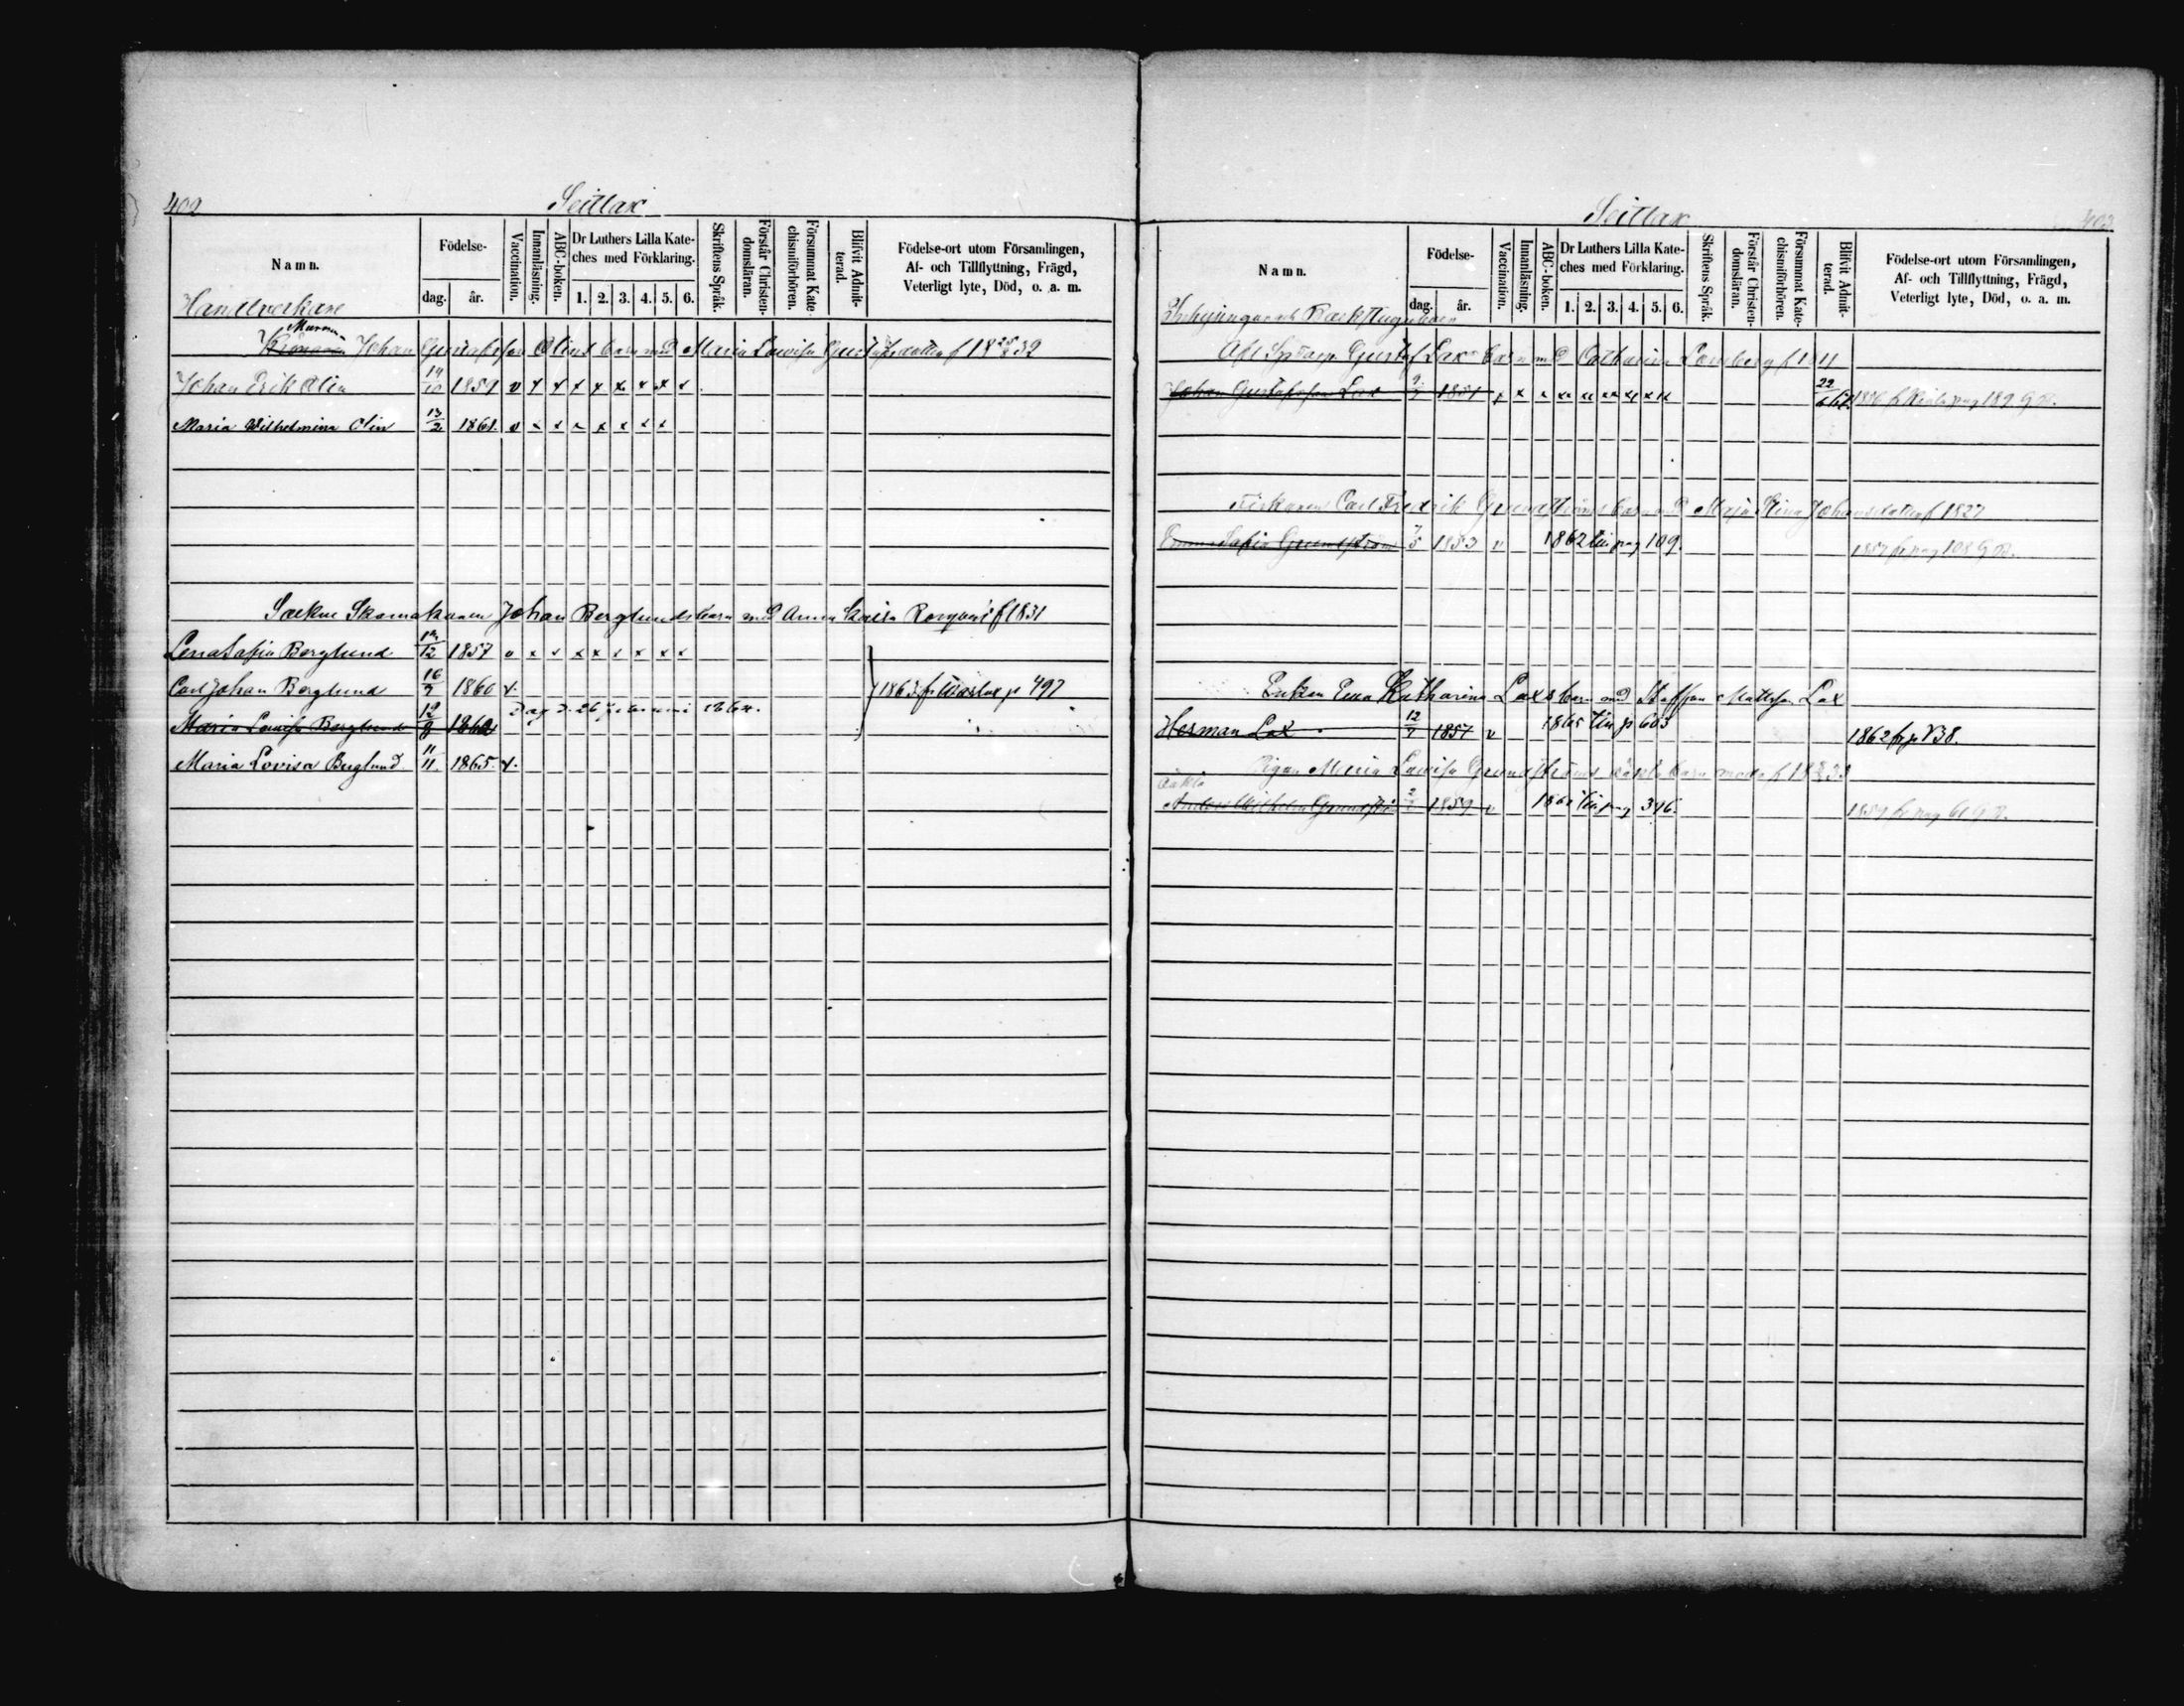 402
Seitlax
Namn.
Födelse-
dag. år.
Vaccination.
Innanläsning.
ABC-boken.
Dr Luthers Lilla Kate-
ches med Förklaring.
1. 2. 3. 4. 5. 6.
Skriftens Språk.
Förstår Christen-
domsläran.
Försummat Kate-
chismiförhören.
Blifvit Admit-
terad.
Födelse-ort utom Församlingen,
Af- och Tillflyttning, Frägd,
Veterligt lyte, Död, o. a. m.
Handtverkare
Johan Gustafsson Olins barn med Maria Lovisa 1832
Johan Erik Olin 14/10 1859 v x x x x x x x x
Maria Wilhelmina Olin 13/2 1861. v x x x x x x x
Johan Berglunds barn md Anna Kaisa f 1831
Lena Sofia Berglund 12 1857 v x x x x x x x x
Carl Johan Berglund 16/7 1860 v. 1863 fr p 497
Maria Lovisa Berglund 12/8 1862 Dog d. 26 februari 1864.
Maria Lovisa Berglund 11/11. 1865. v.
403
Seitlax
Namn.
Födelse-
dag. år.
Vaccination.
Innanläsning.
ABC-boken.
Dr Luthers Lilla Kate-
ches med Förklaring.
1. 2. 3. 4. 5. 6.
Skriftens Språk.
Förstår Christen-
domsläran.
Försummat Kate-
chismiförhören.
Blifvit Admit-
terad.
Födelse-ort utom Församlingen,
Af- och Tillflyttning, Frägd,
Veterligt lyte, Död, o. a. m.
Gustaf Lax barn md Catharina
Johan Gustafsson Lax 1851 x x x x x x x x x 22/6 1856 fr pag 189 G B.
Fiskaren Carl Fredrik Grundströms barn md Maja Stina Johansdotter f 1827
Emma Sofia Grundström 7/5 1853 v 1862 till pag 109. 1857 fr pag 108 G B.
Enkan Eva Katharina Lax's barn md Staffan Mattsson Lax
Herman Lax 12/7 1857 v 1865 till p 603 1862 fr p 738.
Pigan Maria Lovisa Grundströms oäkta barn
oäkta
Anders Wilhelm Grundström 1859 v till pag 346. 1859 fr pag 61 G B.